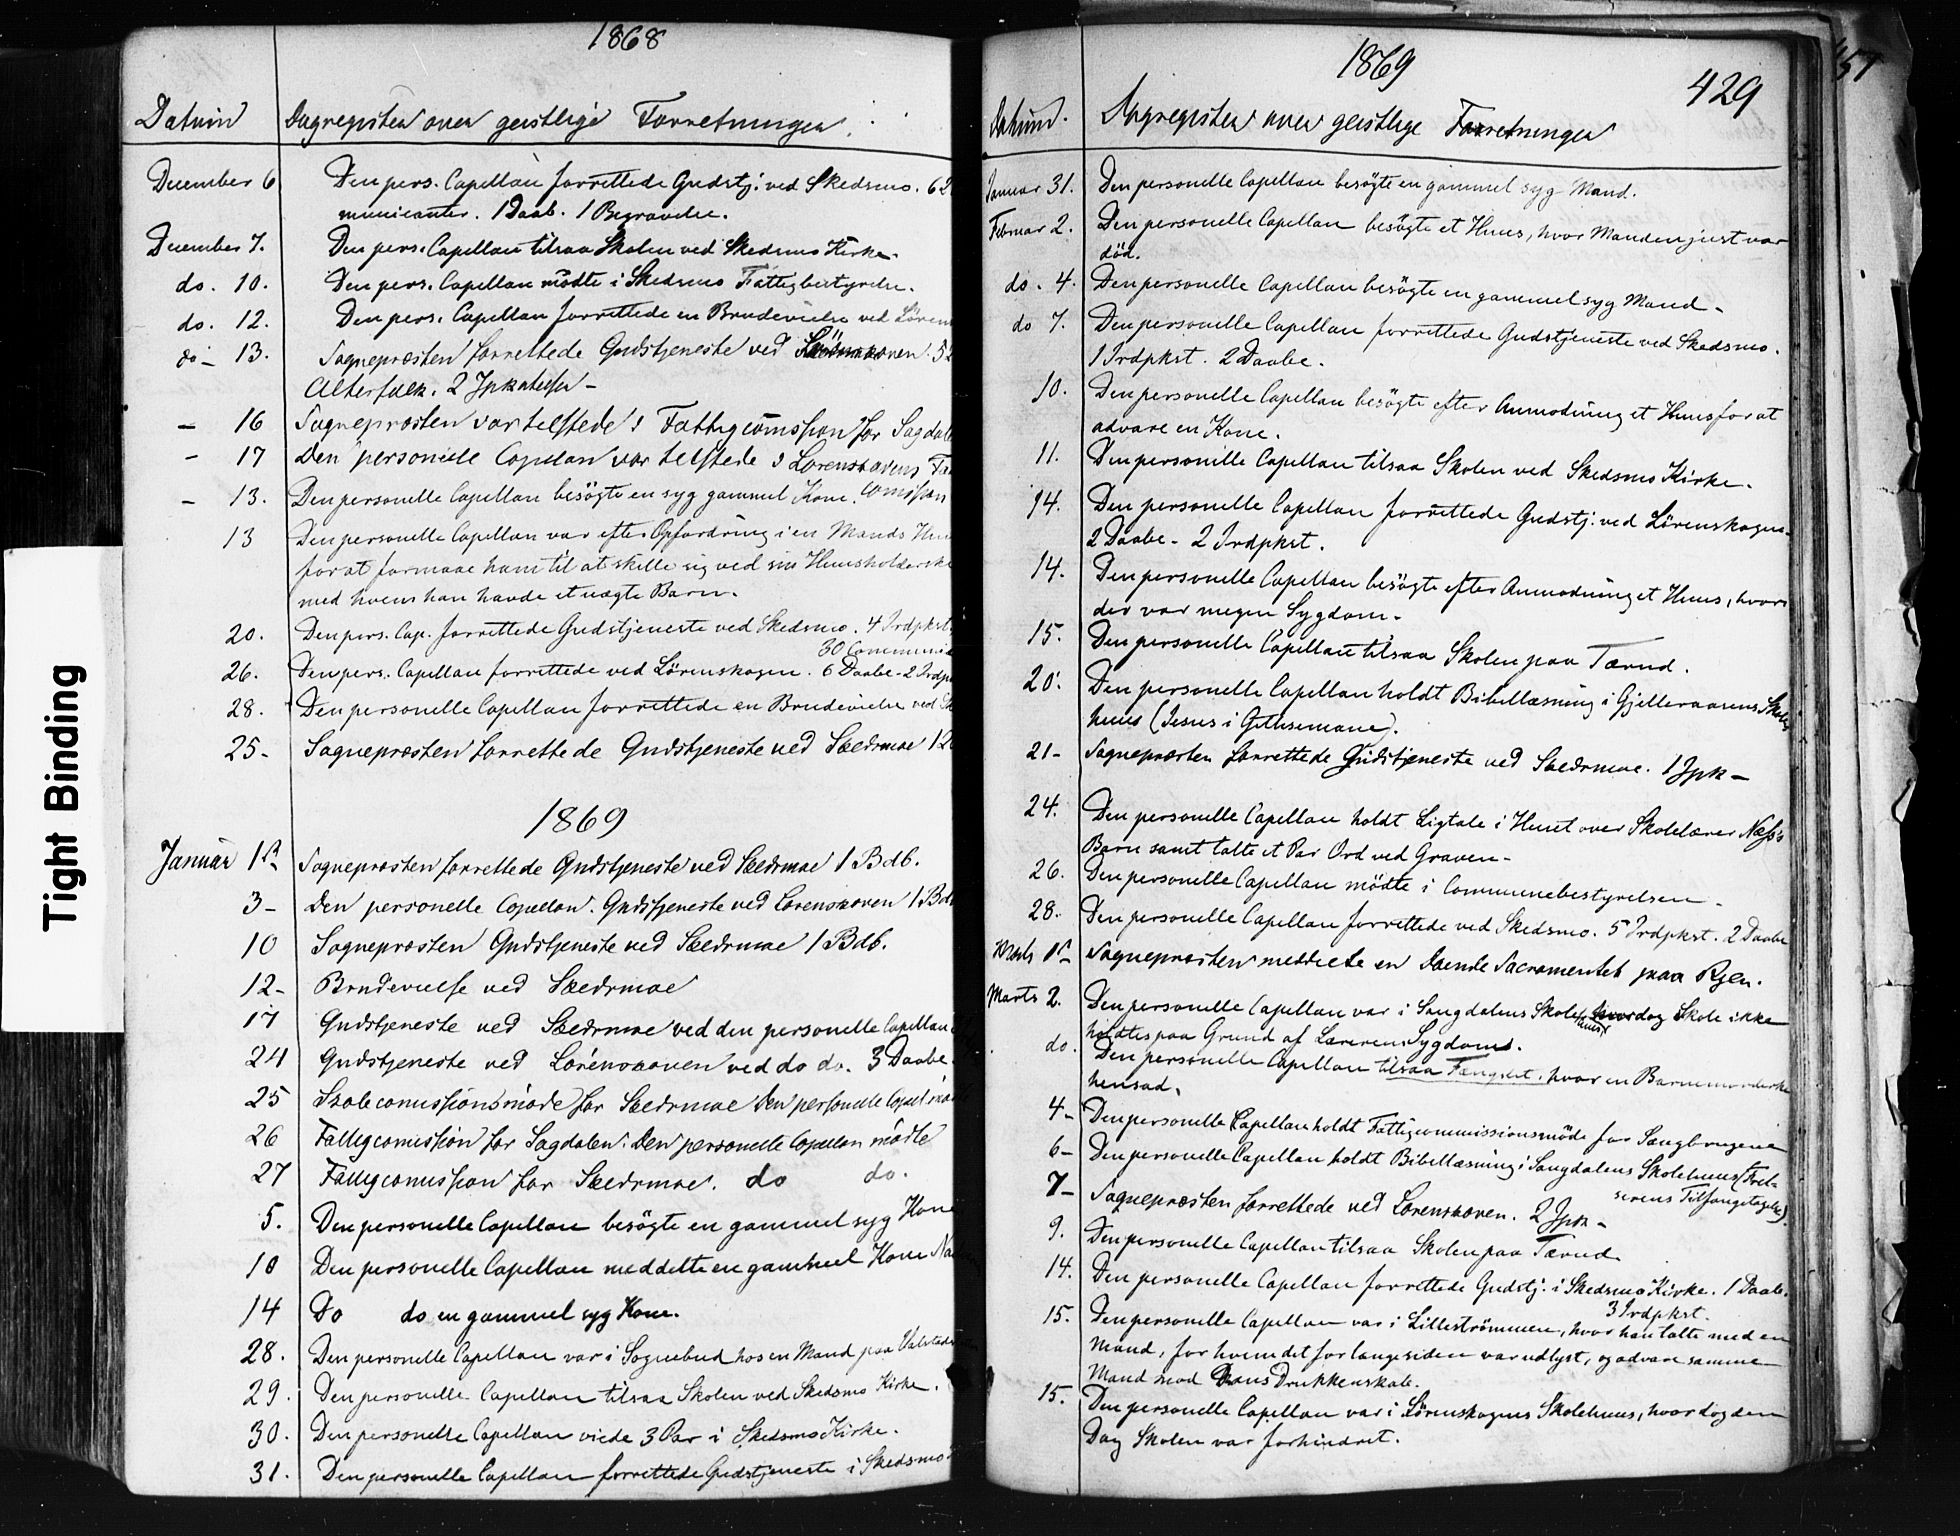 1868
Datum Dagregister over geistlige Forretninger.
December 6 Den pers. Capellan forrettede Gudstj. ved Skedsmo. 62
municanter. 1 Daab. 1 Begravelse.
December 7. Den pers. Capellan tilsaa Skolen ved Skedsmo Kirke.
do. 10. Den pers. Capellan mödte i Skedsmo Fattigbestyrelse.
do. 12. Den pers. Capellan forrettede en Brudevielse ved Lörens
do – 13. Sognepræsten forrettede Gudstjeneste ved
Alterfolk. 2
– 16 Sognepræsten var tilstede i Fattigcomission for Sagdale
– 17 Den personelle Capellan var tilstede i Lørenskovens Fa
– 13. Den personelle Capellan besögte en syg gammel Kone. Comission
13 Den personelle Capellan var efter Opfordring i en Mands Huu
for at formaae ham til at skille sig ved sin Huusholderske
med hvem han havde et uægte Barn.
20. Den pers. Cap. forrettede Gudstjeneste ved Skedsmo. 4 Irdpkst.
60 Communic
26. Den pers. Capellan forrettede ved Lörenskogen. 6 Daabe – 2 Irdp
28. Den personelle Capellan forrettede en Brudevielse ved Sk
25 – Sognepræsten forrettede Gudstjeneste ved Skedsmoe 12
1869
Januar 1ste Sognepræsten forrettede Gudstjeneste ved Skedsmoe 1 Bdb.
3 – Den personelle Capellan. Gudstjeneste ved Lorenskoven 1 Bdb
10 Sognepræsten Gudstjeneste ved Skedsmoe 1 Bdb.
12 – Brudevielse ved Skedsmoe
17 Gudstjeneste ved Skedsmoe ved den personelle Capellan
24 Gudstjeneste ved Lörenskoven ved do do. 3 Daabe.
25 Skolecomissionsmöde for Skedsmoe Den personelle Capel mö
26 Fattigcomission for Sagdalen. Den personelle Capellan mödte
27 Fattigcomission for Skedsmoe. do do.
5. Den personelle Capellan besögte en gammel syg Kone
10 Den personelle Capellan meddelte en gammel Kone Na
14 Do do en gammel syg Kone.
28. Den personelle Capellan var i Sognebud hos en Mand paa
29. Den personelle Capellan tilsaa Skolen ved Skedsmo Kirke.
30. Den personelle Capellan viede 3 Par i Skedsmo Kirke.
31. Den personelle Capellan forrettede Gudstjeneste i Skedsmo
1869
429
457
Datum. Dagregister over geistlige Forretninger
Januar 31. Den personelle Capellan besögte en gammel syg Mand.
Februar 2. Den personelle Capellan besögte et Huus, hvor Manden just var
död.
do. 4. Den personelle Capellan besögte en gammel syg Mand –
do 7. Den personelle Capellan forrettede Gudstjeneste ved Skedsmo.
1 Irdpkst. 2 Daabe.
10. Den personelle Capellan besögte efter Anmodning et Huus for at
advare en Kone.
11. Den personelle Capellan tilsaa Skolen ved Skedsmo Kirke.
14. Den personelle Capellan forrettede Gudstj. ved Lörenskogen.
2 Daabe – 2 Irdpkst.
14. Den personelle Capellan besögte efter Anmodning et Huus, hvor
der var megen Sygdom –
15. Den personelle Capellan tilsaa Skolen paa Tærud.
20. Den personelle Capellan holdt Bibellæsning i Gjelleraasens Skole
huus (Jesus i Gethsemane).
21 – Sognepræsten forrettede Gudstjeneste ved Skedsmoe. 1 Jpk –
24. Den personelle Capellan holdt Ligtale i Huset over Skolelærer Næss's
Barn samt talte et Par Ord ved Graven –
26. Den personelle Capellan mödte i Communebestyrelsen –
28. Den personelle Capellan forrettede ved Skedsmo. 5 Irdpkst. 2 Daabe
Marts 1ste Sognepræsten meddeelte en döende Sacramentet paa Ryen.
Marts 2. Den personelle Capellan var i Saugdalens Skole hvor dog Skole ikke
huus
holdtes paa Grund af Lærerens Sygdom.
do. Den personelle Capellan tilsaa Fængslet, hvor en Barnemorderske
hensad.
4 – Den personelle Capellan holdt Fattigcommissionsmöde for Saugbrugene
6 – Den personelle Capellan holdt Bibellæsning i Saugdalens Skolehuus (Frel-
serens Tilfangetagelse).
7 – Sognepræsten forrettede ved Lorenskoven. 2 Jpk –
9. Den personelle Capellan tilsaa Skolen paa Tærud
14. Den personelle Capellan forrettede Gudstj. i Skedsmo Kirke. 1 Daab.
3 Irdpkst.
15. Den personelle Capellan var i Lilleströmmen, hvor han talte med en
Mand, for hvem det for længe siden var udlyst, og advare samme
Mand mod Hans Drukkenskab.
15. Den personelle Capellan var i Lörenskogens Skolehuus, hvor dog den
Dag Skolen var forhindret.
Tight Binding